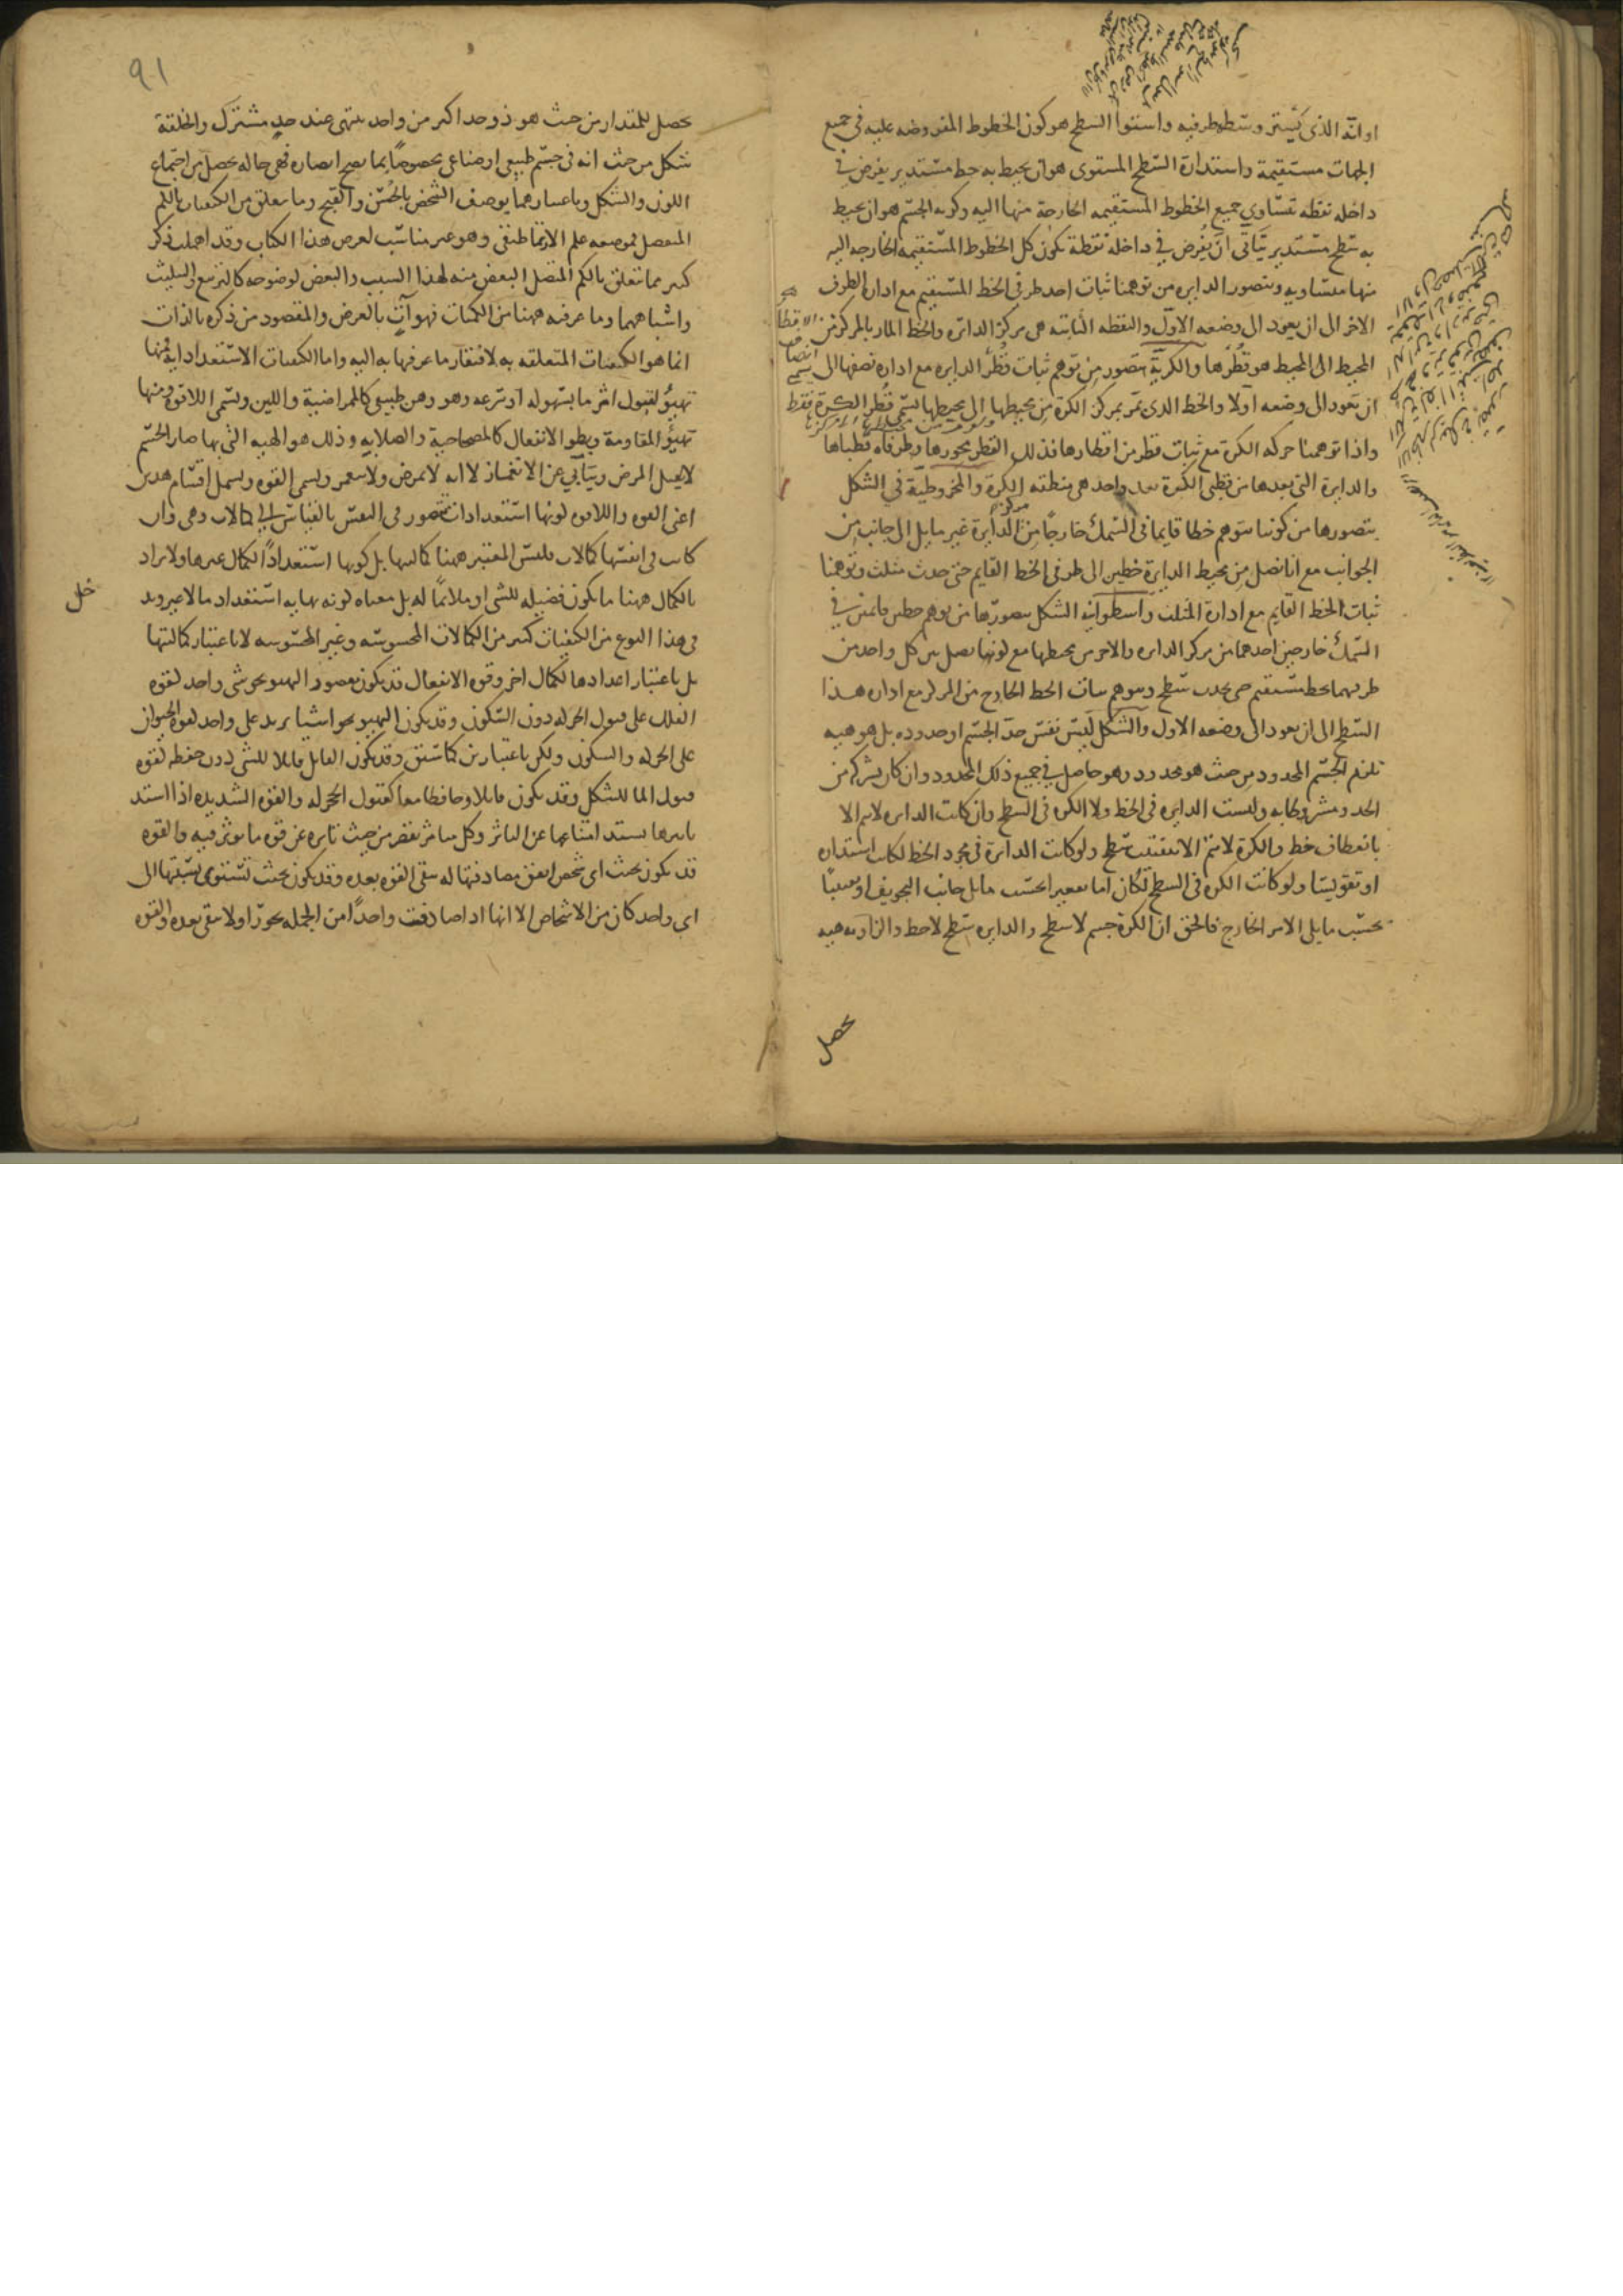 او انه الذى يستر وسطه طرفيه واستوا السطح هو كون الخطوط المفروضه عليه فى جميع
الجهات مستقيمة واستدارة السطح المستوى هو ان يحيط به خط مستدير يفرض فى
داخله نقطه تتساوي جميع الخطوط المستقيمه الخارجة منها اليه وكريه الجسم هو ان يحيط
به سطح مستدير يتأتى ان يفرض في داخله نقطة تكون كل الخطوط المستقيمه الخارجه اليه
منها متساويه ويتصور الدايره من توهمنا ثبات احد طرفى الخط المستقيم مع اداره الطرف
الاخر الى ان يعود الى وضعه الاول والنقطه الثابته هى مركز الدائره والخط المار بالمركز من
المحيط الى المحيط هو قطرها والكرية يتصور من توهم ثبات قطر الدايره مع اداره نصفها الى
ان يعود الى وضعه اولا والخط الذى يمر بمركز الكرة من محيطها الى محيطها يسمى قطر الكرة فقط
واذا توهمنا حركه الكرة مع ثبات قطر من اقطارها فذلك القطر محورها وطرفاه قطباها
والدايرة التى بعدها من قطبى الكرة بعد واحد هى منطقه الكرة والمخروطية في الشكل
يتصورها من كوننا نتوهم خطا قايما فى السمك خارجا من الدايرة غير مايل الى جانب من
مركز
الجوانب مع انا نصل من محيط الدايرة خطين الى طرفى الخط القايم حتى حدث مثلث وتوهمنا
ثبات الخط القايم مع ادارة المثلث واسطوانيه الشكل يتصورها من توهم خطين قائمين في
السمك خارجين احدهما من مركز الدايره والاخر من محيطها مع كوننا نصل بين كل واحد من
طرفيهما بخط مستقيم حتى يحدث سطح ونتوهم ثبات الخط الخارج من المركز مع اداره هذا
السطح الى ان يعود الى وضعه الاول والشكل ليس نفس حد الجسم او حدوده بل هو هيه
تلزم الجسم المحدود من حيث هو محدود وهو حاصل في جميع ذلك المحدود وان كان بشركه من
الحد ومشروطا به وليست الدايره فى الخط ولا الكره فى السطح وان كانت الدايره لا يتم الا
بانعطاف خط والكرة لا يتم الا بتقبب سطح ولو كانت الدايرة فى مجرد الخط لكانت استداره
او تقويسا ولو كانت الكره فى السطح لكان اما تقعيرا بحسب ما يلى جانب التجويف او تقبيبا
بحسب ما يلى الامر الخارج فالحق ان الكرة جسم لا سطح والدايره سطح لا خط والزاويه هيه
يحصل
٩١
يحصل للمقدار من حيث هو ذو حد اكثر من واحد ينتهى عند حد مشترك والخلقة
شكل من حيث انه فى جسم طبيعى او صناعى مخصوصا بما يصح ابصاره فهى حاله يحصل من اجتماع
اللون والشكل وباعتبارهما يوصف الشخص بالحسن والقبح وما يتعلق من الكيفيات بالكم
المنفصل فموضعه علم الارتماطيقى وهو غير مناسب لغرض هذا الكتاب وقد اهملت ذكر
كثير مما يتعلق بالكم المتصل البعض منه لهذا السبب والبعض لوضوحه كالتربيع والتثليث
واشباههما وما عرفته ههنا من الكميات فهو آت بالعرض والمقصود من ذكره بالذات
انما هو الكيفيات المتعلقه به لافتقار ما عرفها به اليه واما الكيفيات الاستعدادية فمنها
تهيؤ لقبول اثر ما بسهوله او سرعه وهو وهن طبيعى كالممراضية واللين ويسمى اللاقوة ومنها
تهيؤ للمقاومة وبطو الانفعال كالمصحاحية والصلابه وذلك هو الهيه التى بها صار الجسم
لا يقبل المرض ويتأبي عن الانغماز لا انه لا يمرض ولا ينغمز ويسمى القوه ويشمل اقسام هذين
اعنى القوه واللاقوه كونها استعدادات يتصور فى النفس بالقياس الى كمالات وهى وان
كانت فى انفسها كمالات فليس المعتبر ههنا كماليتها بل كونها استعدادا لكمال غيرها ولا يراد
بالكمال ههنا ما يكون فضيله للشى او ملائما له بل معناه كونه نهايه استعداد ما لا غير وقد
خل
فى هذا النوع من الكيفيات كثير من الكمالات المحسوسه وغير المحسوسه لا باعتبار كماليتها
بل باعتبار اعدادها لكمال اخر وقوه الانفعال قد يكون مقصور التهيو نحو شى واحد كقوه
الفلك على قبول الحركه دون السكون وقد يكون التهيو نحو اشيا يزيد على واحد كقوه الحيوان
على الحركه والسكون ولكن باعتبارين كما سبق وقد يكون القابل قابلا للشى دون حفظه كقوه
قبول الما للشكل وقد يكون قابلا وحافظا معا كقبول الحجر له والقوه الشديده اذا اشتد
تاثيرها يشتد امتناعها عن التاثر وكل متاثر نقص من حيث تاثره عن قوه ما يوثر فيه والقوه
قد يكون بحيث اى شخص اتفق مصادفتها له تبقى القوه بعده وقد يكون بحيث تستوى نسبتها الى
اى واحد كان من الاشخاص الا انها اذا صادفت واحدا من الجمله تحوزا ولا تبقى بعده والقوه